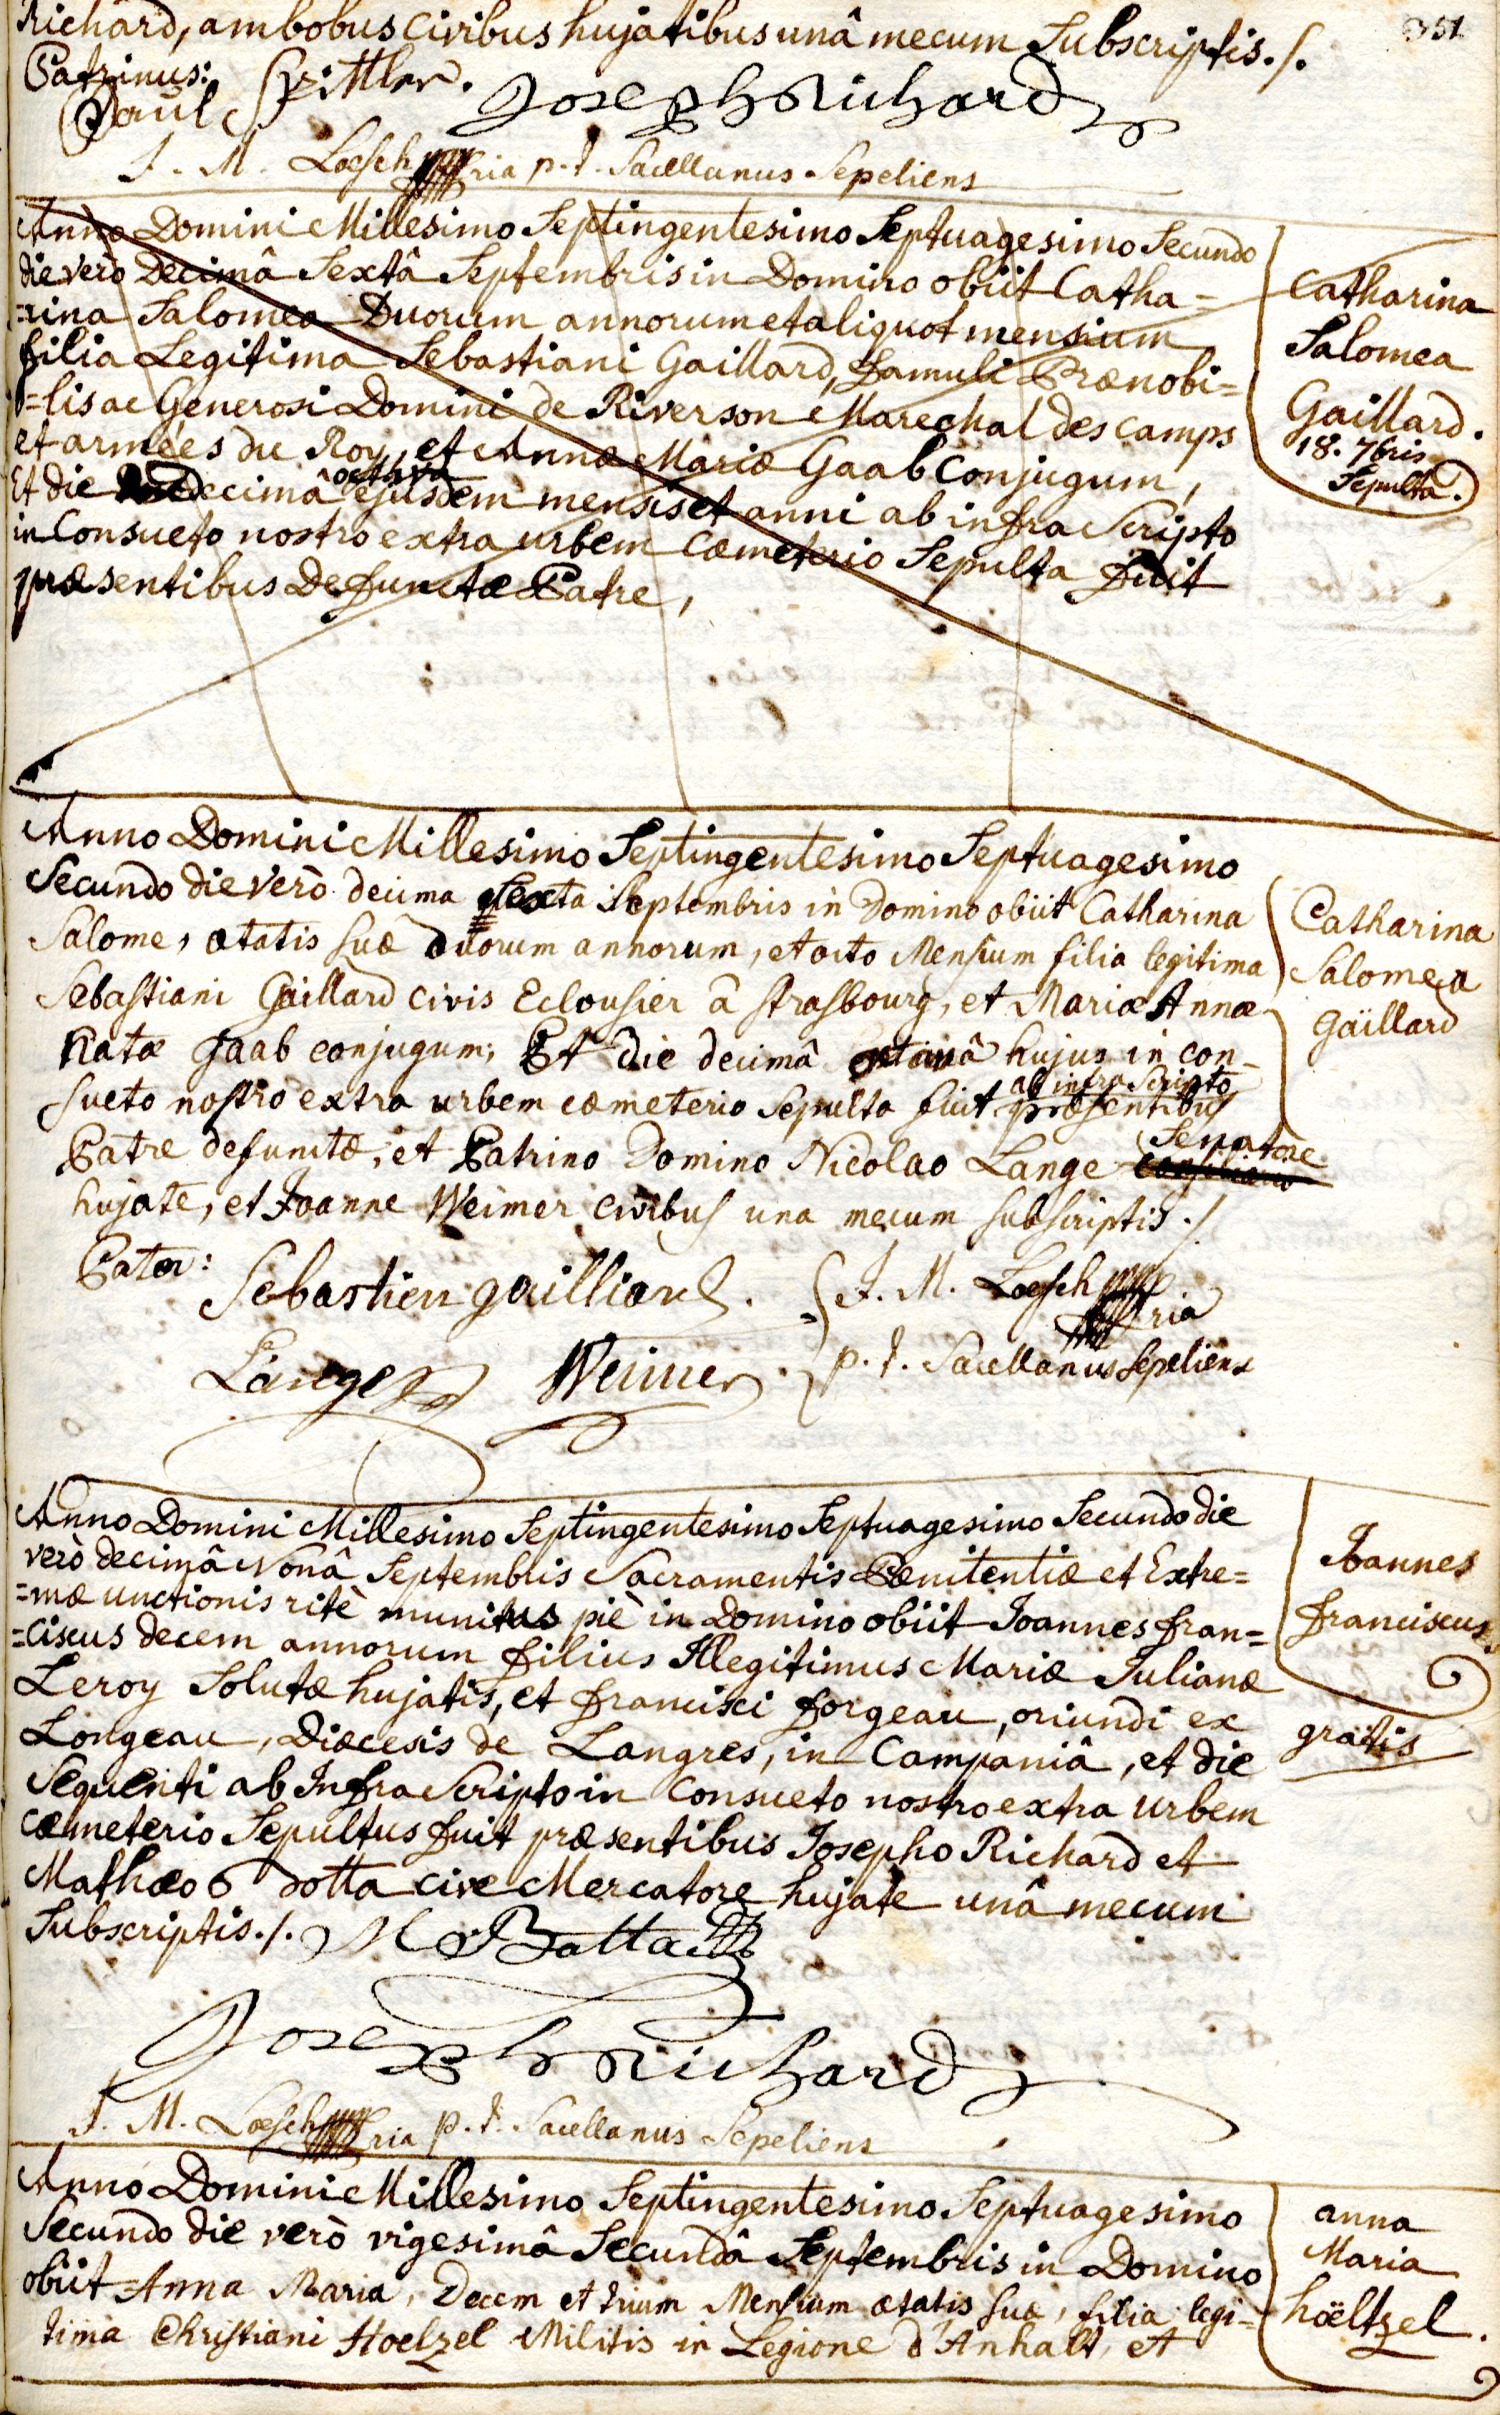 351
Richard, ambobus Civibus hujatibus unâ mecum Subscriptis./.
Patrinus:
Paul Spittler. Joseph Richard
J. M. Loesch mppria p. t. Sacellanus Sepeliens
Anno Domini Millesimo Septingentesimo Septuagesimo Secundo
die verò Decimâ Sextâ Septembris in Domino obiit Catha=
=rina Salomea Duorum annorum et aliquot mensium
filia Legitima Sebastiani Gaillard, famuli Prænobi=
=lis ac Generosi Domini de Riverson Marechal des camps
et armées du Roy, et Annæ Mariæ Gaab Conjugum,
Et die decimâ octava ejusdem mensis et anni ab infra Scripto
in Consueto nostro extra urbem Cæmeterio Sepulta fuit
præsentibus Defunctæ Patre,
Catharina
Salomea
Gaillard.
18. 7bris
Sepulta.
Anno Domini Millesimo Septingentesimo Septuagesimo
Secundo die verò decima Sexta Septembris in Domino obiit Catharina
Salome, ætatis suæ duorum annorum, et octo Mensium filia legitima
Sebastiani Gaillard civis Eclousier â Strasbourg, et Mariæ Annæ
Natæ Gaab conjugum; Et die decimâ octavâ hujus in con-
sueto nostro extra urbem cæmeterio Sepulta fuit ab infra Scripto præsentibus
Patre defunctæ, et Patrino Domino Nicolao Lange Senatore
hujate, et Joanne Weimer civibus una mecum subscriptis./
Catharina
Salomea
Gäillard
Pater:
Sebastien gailliard. J. M. Loesch mppria
Lange Weimer p. t. Sacellanus Sepeliens
Anno Domini Millesimo Septingentesimo Septuagesimo Secundo die
verò decimâ Nonâ Septembris Sacramentis Pœnitentiæ et Extre=
=mæ unctionis ritè munitus piè in Domino obiit Joannes fran=
=ciscus decem annorum filius Illegitimus Mariæ Julianæ
Leroy Solutæ hujatis, et francisci forgeau, oriundi ex
Longeau, Diœcesis de Langres, in Campaniâ, et die
Sequenti ab Infra Scripto in Consueto nostro extra urbem
Cæmeterio Sepultus fuit præsentibus Josepho Richard et
Mathæo dotta cive Mercatore hujate unâ mecum
Subscriptis./. M Batta
Joannes
franciscus
gratis
Joseph Richard
J. M. Loesch mppria p. t. Sacellanus Sepeliens
Anno Domini Millesimo Septingentesimo Septuagesimo
Secundo die verò vigesimâ Secundâ Septembris in Domino
obiit Anna Maria, Decem et trium Mensium ætatis suæ, filia legi=
tima Christiani Hoelzel Militis in Legione d'Anhalt, et
anna
Maria
höeltzel.